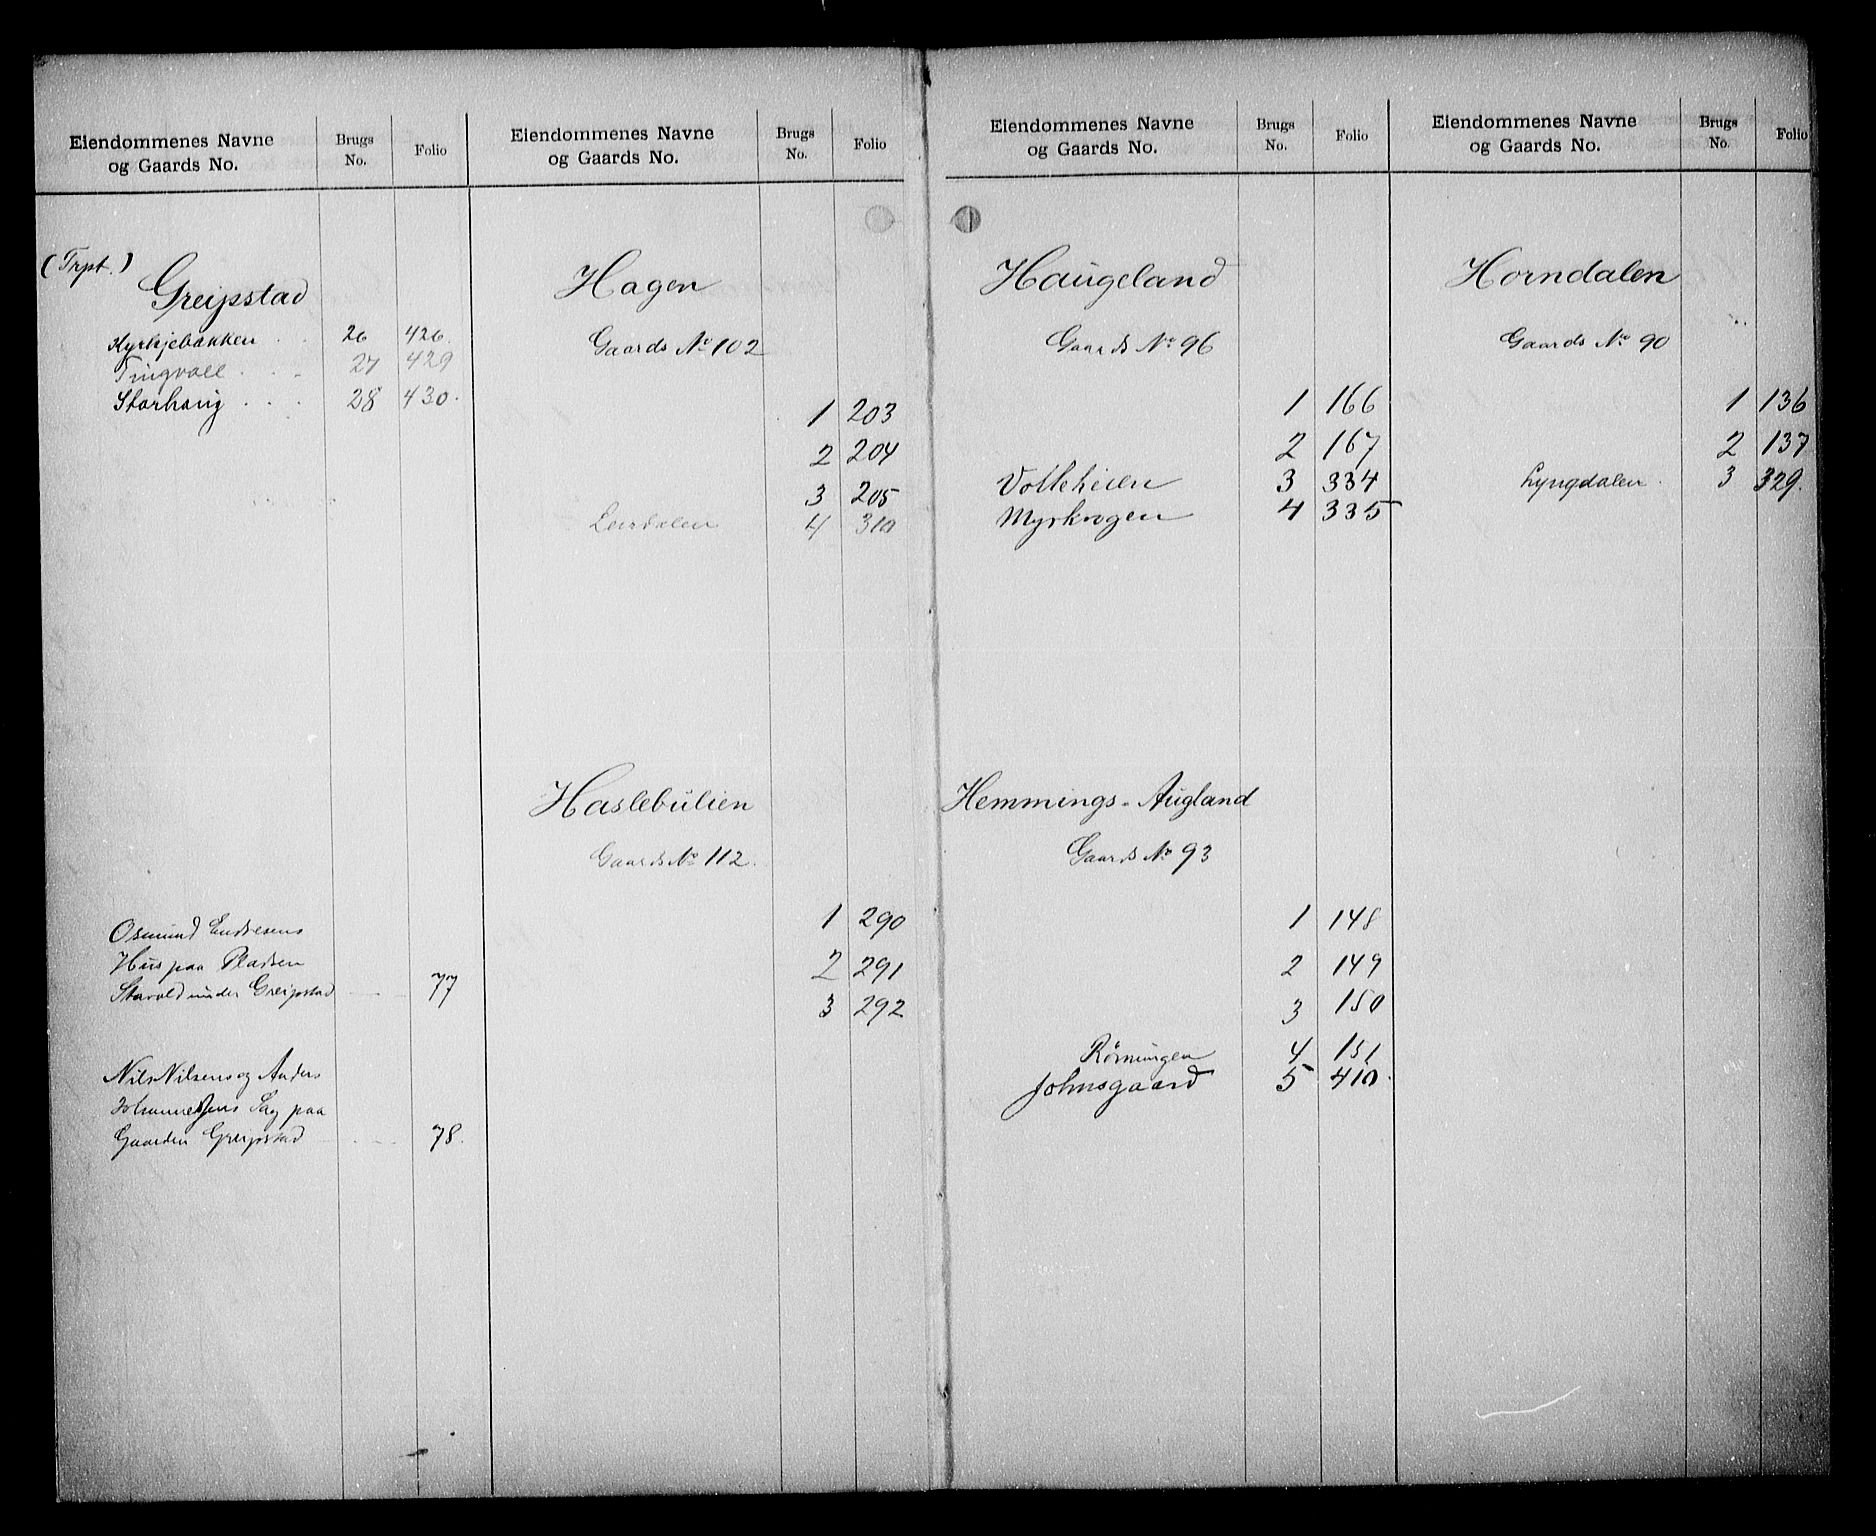 Eiendommenes Navne og Gaards No. Brugs No. Folio
(Trpt.)
Greipstad
Kyrkjebakken . . 26 426.
Tingvoll . . . 27 429
Storhaug . . . 28 430.
Osmund Endresens
Hus paa Pladsen
under Greipstad 77
Nils Nilsens og Anders
Johannesens Sag paa
Gaarden Greipstad 78.
Eiendommenes Navne og Gaards No. Brugs No. Folio
Hagen
Gaards No 102
1 203
2 204
3 205
Leirdalen 4 310
Haslebulien
Gaards No 112.
1 290
2 291
3 292
Eiendommenes Navne og Gaards No. Brugs No. Folio
Haugeland
Gaards No 96
1 166
2 167
3 334
Myrkrogen 4 335
Hemmings-Augland
Gaards No 93
1 148
2 149
3 150
Rømningen 4 151
Johnsgaard 5 410.
Eiendommenes Navne og Gaards No. Brugs No. Folio
Horndalen
Gaards No 90
1 136
2 137
Lyngdalen. 3 329.